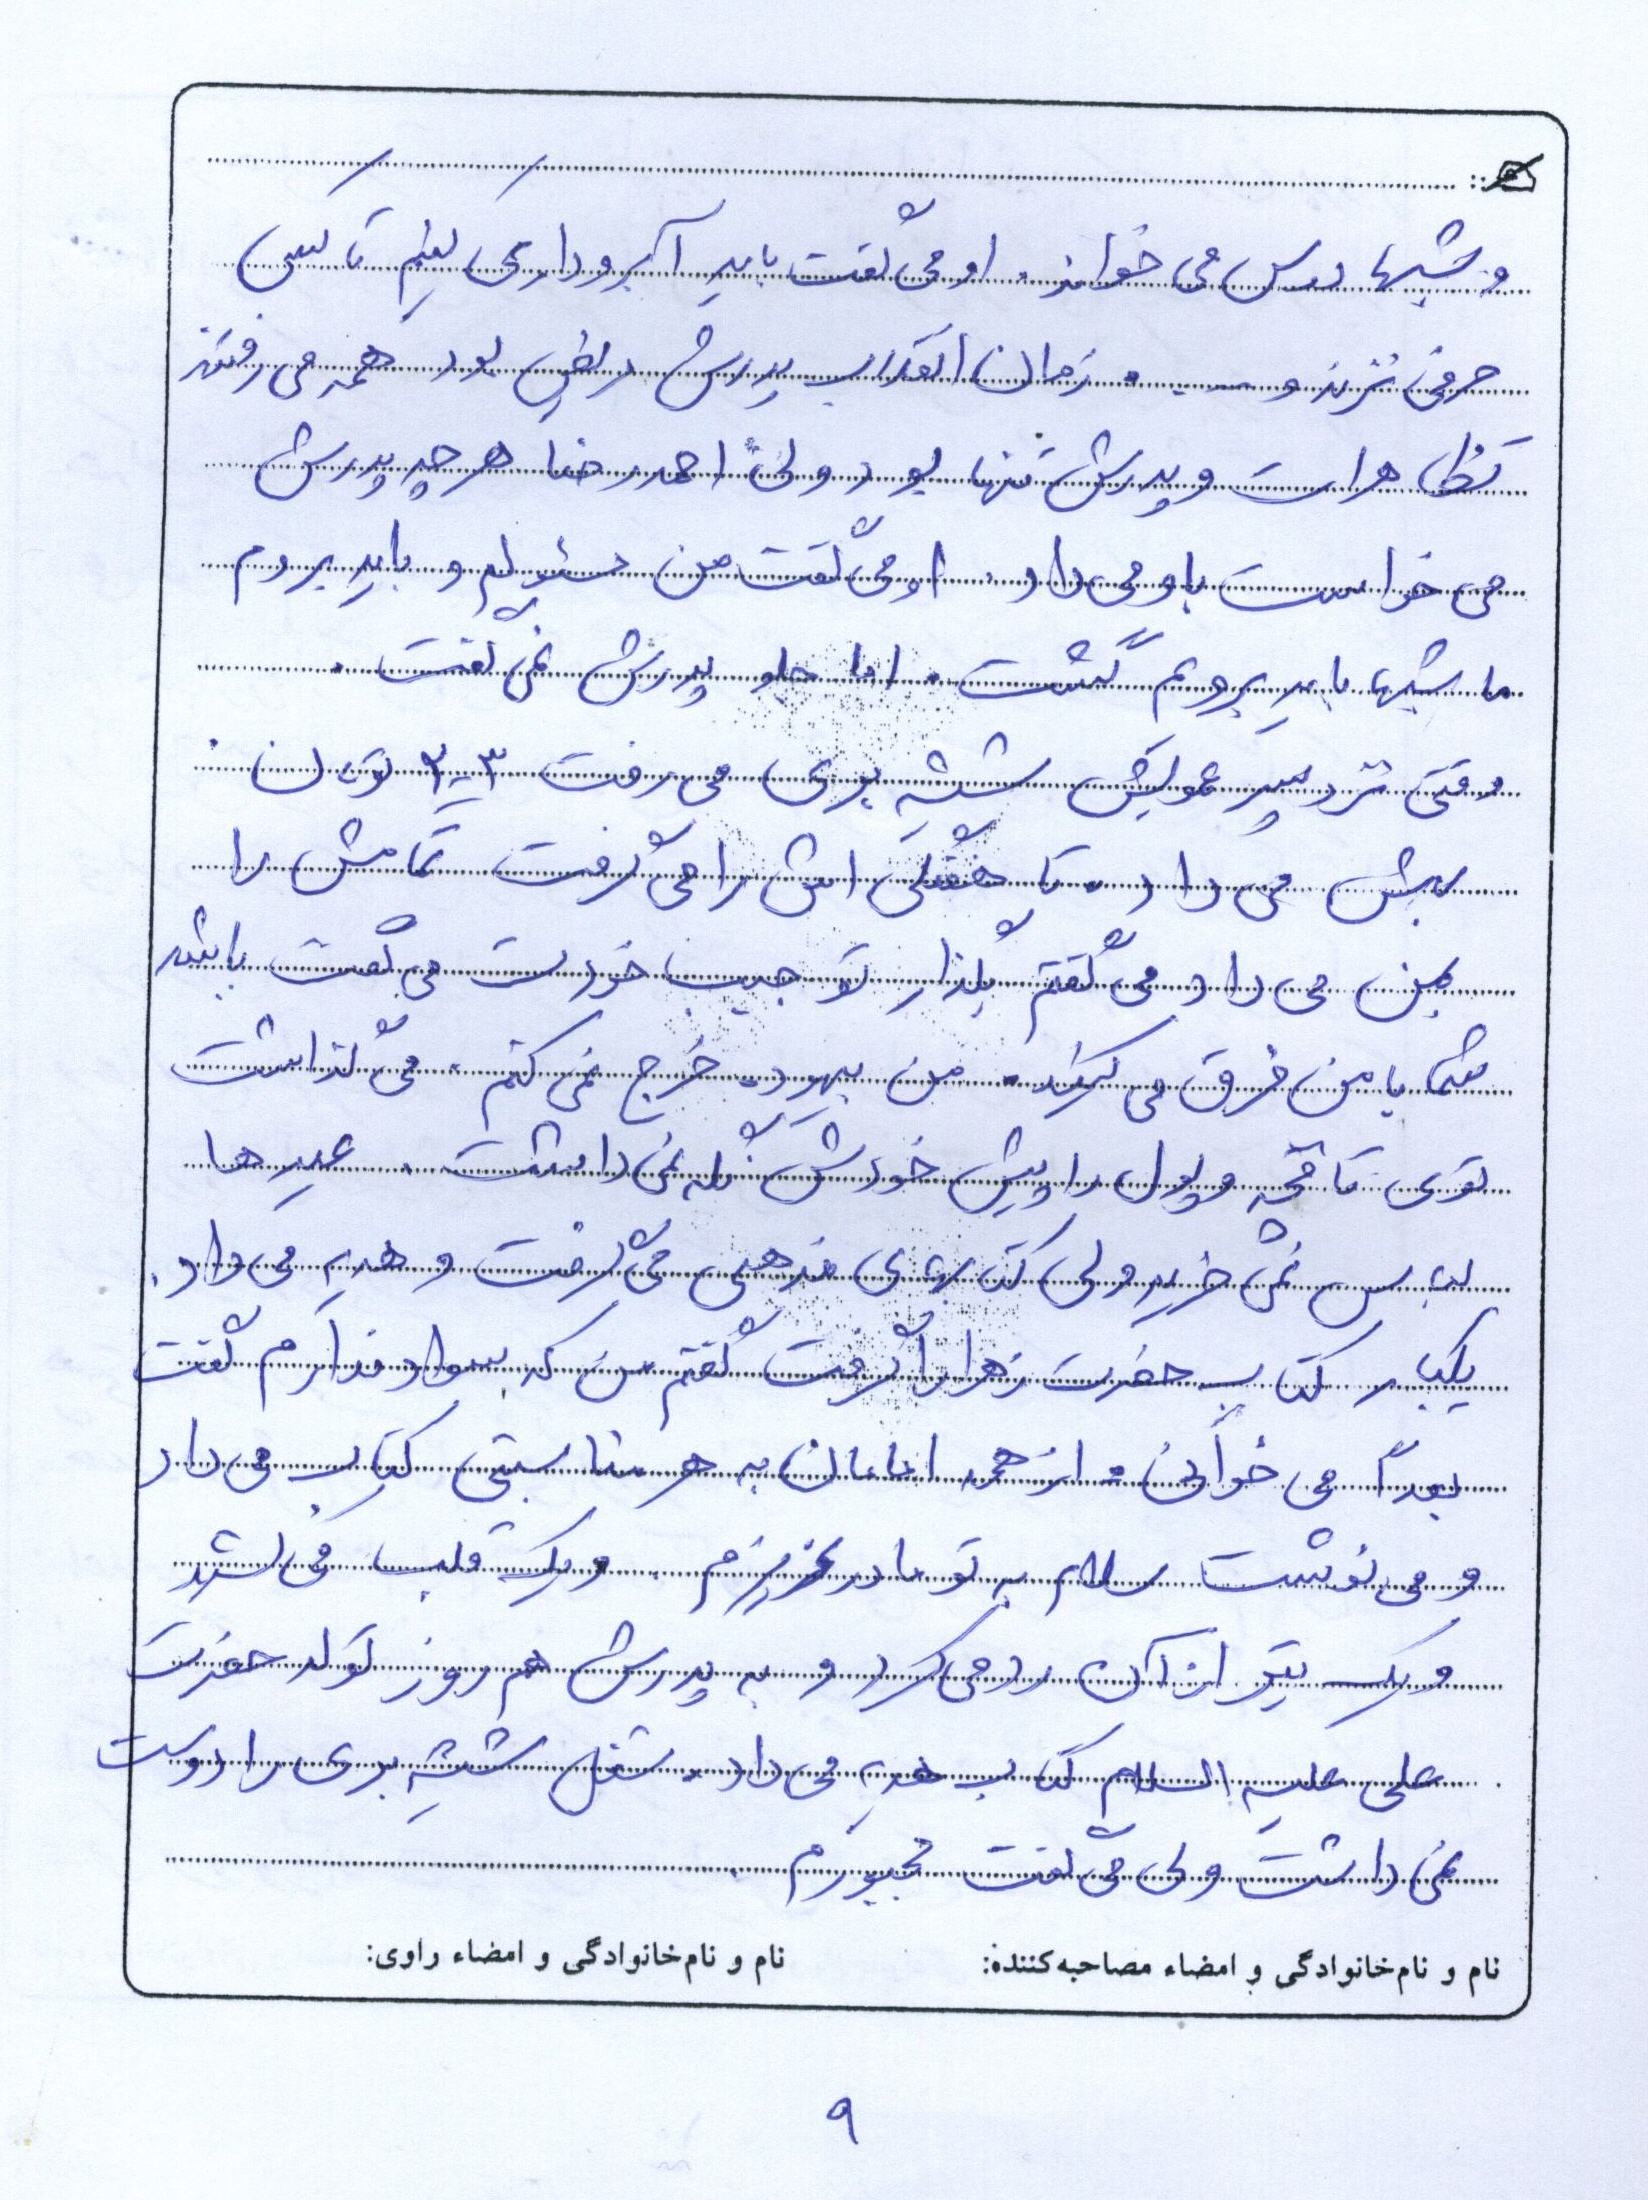 و شبها درس می خواند. او می گفت باید آبروداری کنیم تا کسی
حرفی نزند و ـــ . زمان انقلاب پدرش مریض بود همه می رفتند
تظاهرات و پدرش تنها بود ولی احمدرضا هر چه پدرش
می خواست باو می داد. او می گفت من مسئولم و باید بروم
ما شبها باید برویم گشت. اما جلو پدرش نمی گفت.
وقتی نزد پسر عمویش شیشه بری می رفت ۳ـ۲ تومان
بهش می داد. تا هفتگی اش را می گرفت تمامش را
بمن می داد می گفتم بگذار تو جیب خودت می گفت باشد
شما با من فرق می کنید. من بیهوده خرج نمی کنم. می گذاشت
توی تاقچه و پول را پیش خودش نگه نمی داشت. عیدها
لباس نمی خرید ولی کتابهای مذهبی می گرفت و هدیه می داد.
یکبار کتاب حضرت زهرا را گرفت گفتم من که سواد ندارم گفت
بعداً می خوانی. از همه امامان به هر مناسبتی کتاب می داد
و می نوشت سلام به تو مادر عزیزم. و یک قلب می کشید
و یک تیر از آن رد می کرد و به پدرش هم روز تولد حضرت
علی علیه السلام کتاب هدیه می داد. شغل شیشه بری را دوست
نمی داشت ولی می گفت مجبورم.
نام و نام‌خانوادگی و امضاء مصاحبه‌کننده: نام و نام‌خانوادگی و امضاء راوی:
۹